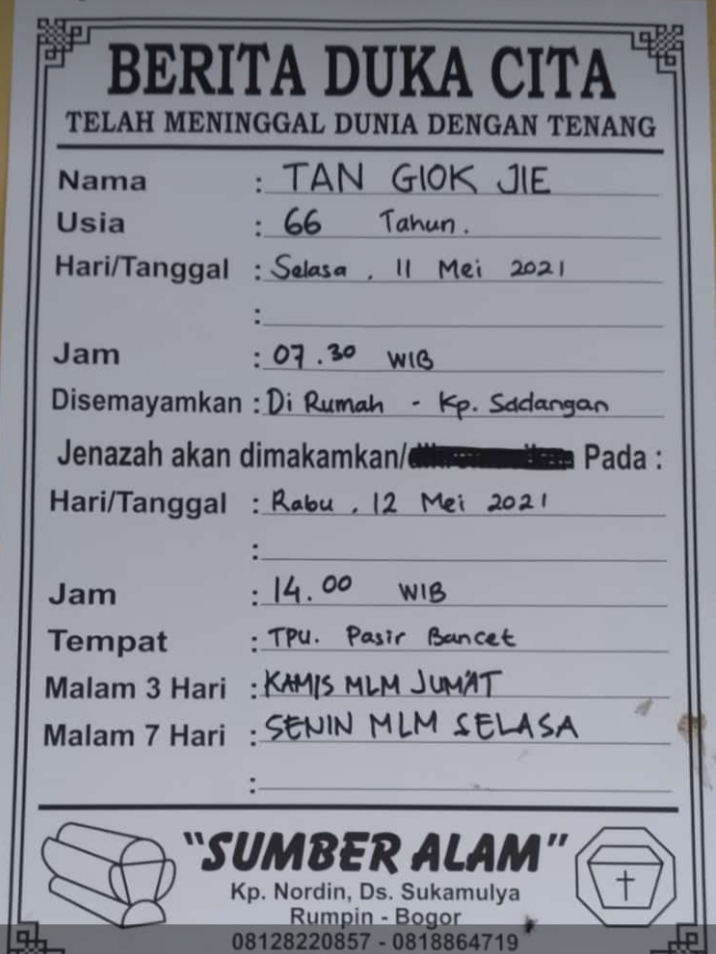 BERITA DUKA CITA
TELAH MENINGGAL DUNIA DENGAN TENANG
Nama : TAN GIOK JIE
Usia : 66 Tahun.
Hari/Tanggal : Selasa, 11 Mei 2021
:
Jam : 07.30 WIB
Disemayamkan : Di Rumah - Kp. Sadangan
Jenazah akan dimakamkan/ Pada :
Hari/Tanggal : Rabu, 12 Mei 2021
:
Jam : 14.00 WIB
Tempat : TPU. Pasir Bancet
Malam 3 Hari : KAMIS MLM JUM'AT
Malam 7 Hari : SENIN MLM SELASA
:
"SUMBER ALAM"
Kp. Nordin, Ds. Sukamulya
Rumpin - Bogor
08128220857 - 0818864719